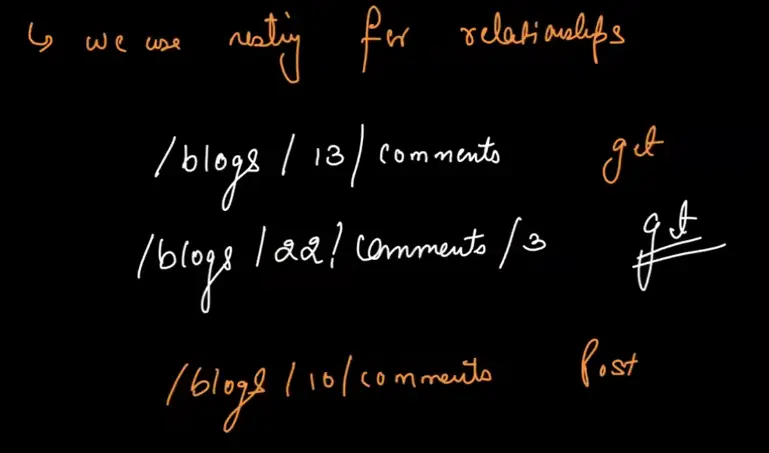 ↳ we use nesting for relationships
/blogs / 13/ comments get
/blogs / 22/ comments /3 get
/blogs / 10/ comments Post